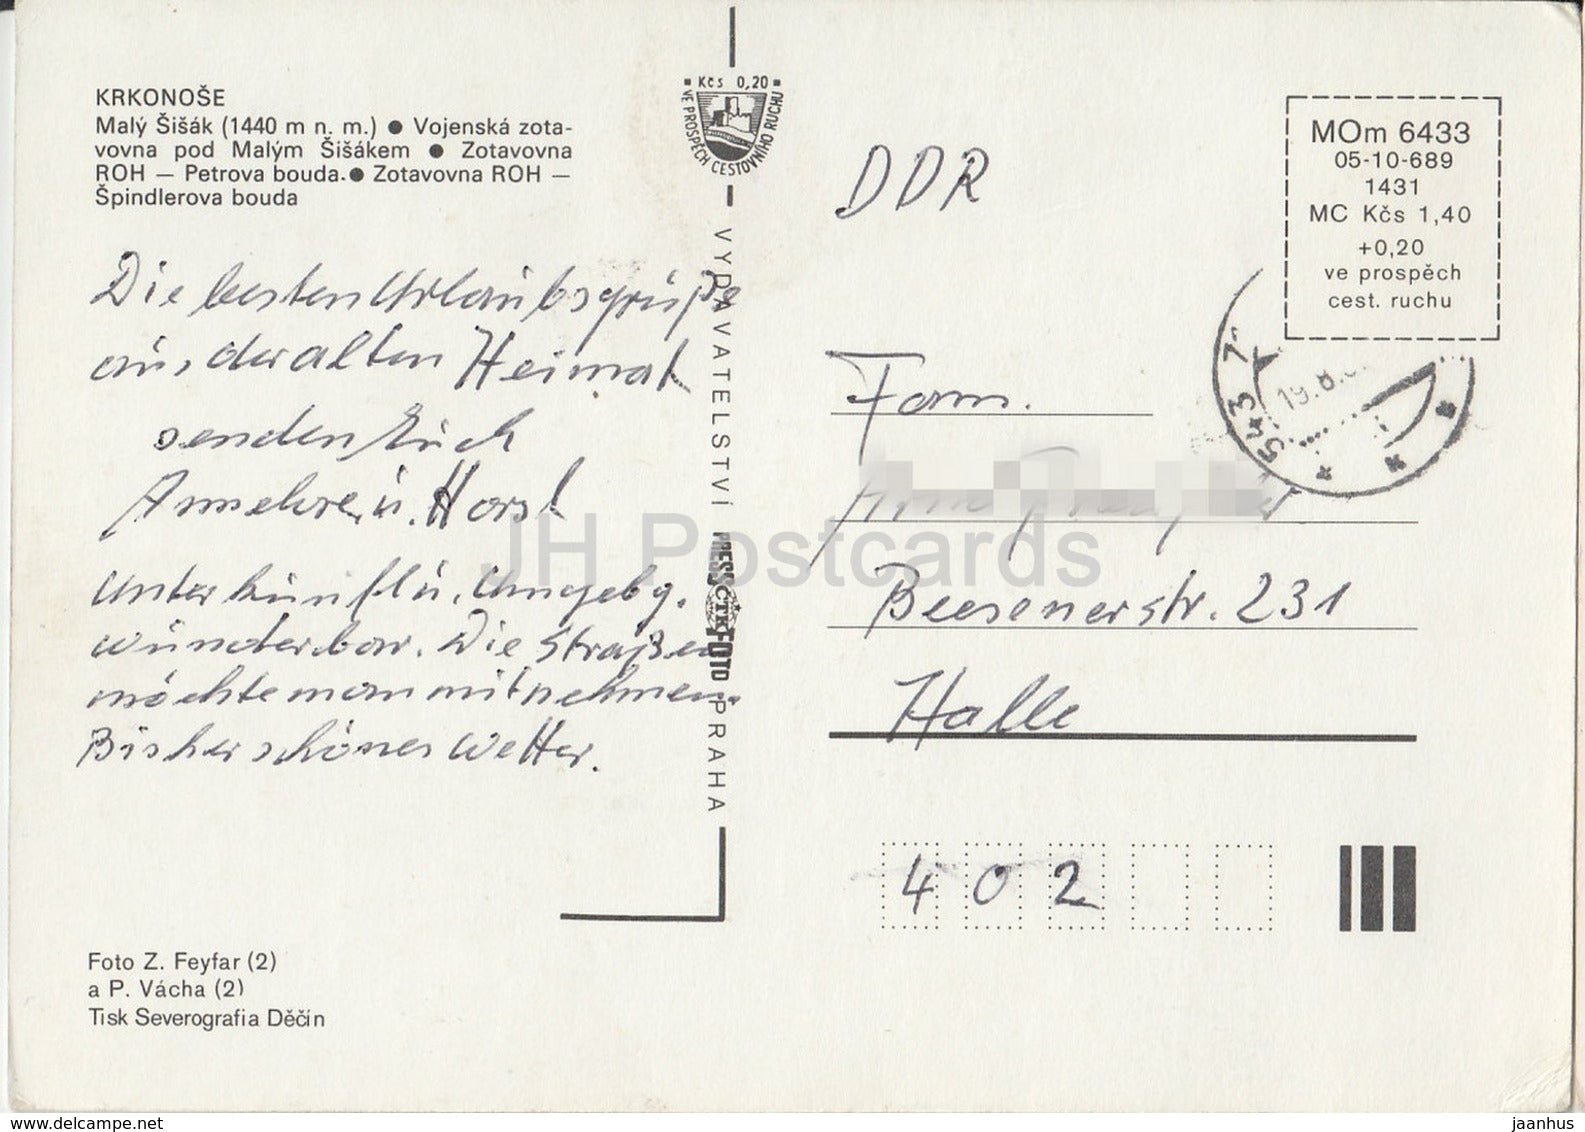 KRKONOŠE
Malý Šišák (1440 m n. m.) ● Vojenská zota-
vovna pod Malým Šišákem ● Zotavovna
ROH — Petrova bouda. ● Zotavovna ROH —
Špindlerova bouda
Die besten Urlaubsgrüße
aus der alten Heimat
senden Euch
u. Horst
Unterkunft u. Umgebg.
wunderbar. Die Straßen
möchte man mitnehmen.
Bisher schönes Wetter.
Foto Z. Feyfar (2)
a P. Vácha (2)
Tisk Severografia Děčín
Kčs 0,20
VE PROSPĚCH CESTOVNÍHO RUCHU
VYDAVATELSTVÍ PRESSFOTO PRAHA
ČTK
DDR
MOm 6433
05-10-689
1431
MC Kčs 1,40
+0,20
ve prospěch
cest. ruchu
543
19.8.
Fam.
Beesenerstr. 231
Halle
402
JH Postcards
www.delcampe.net
jaanhus